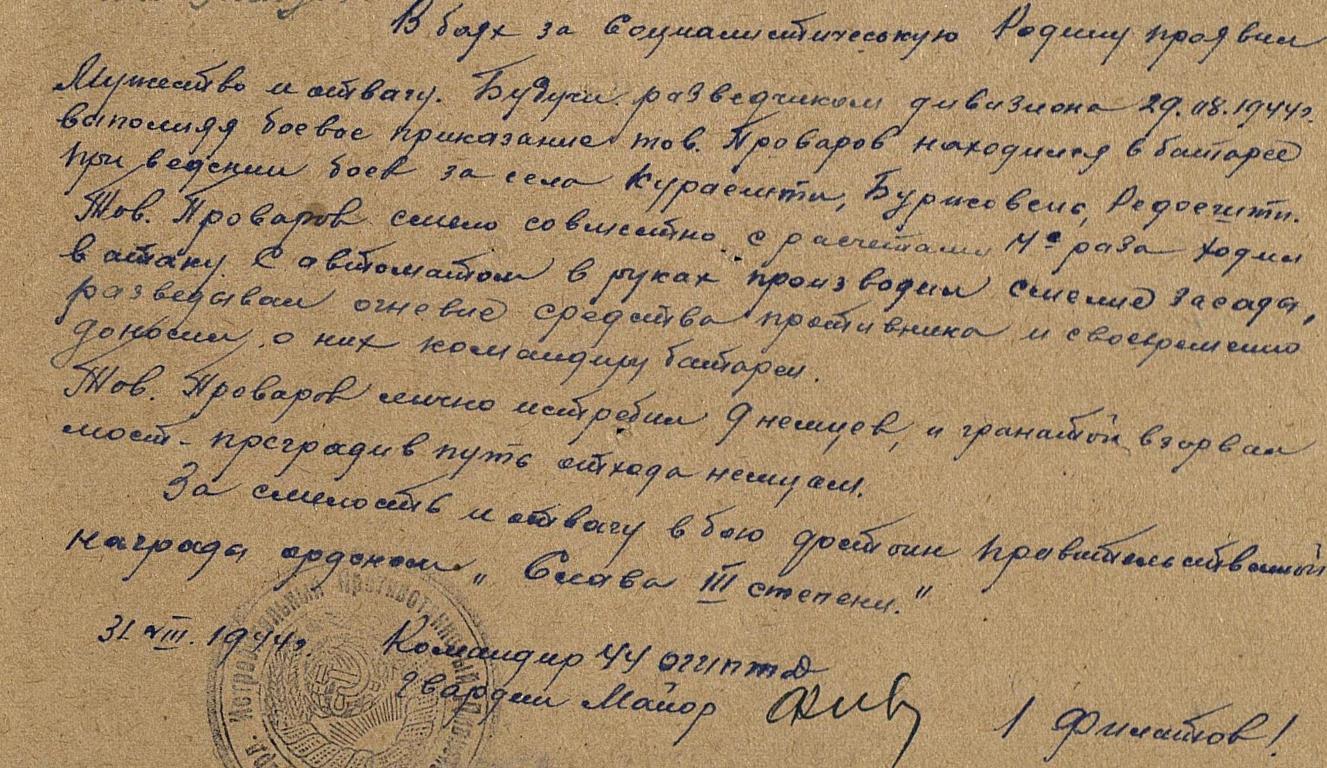 В боях за Социалистическую Родину проявил
Мужество и отвагу. Будучи разведчиком дивизиона 29.08.1944г.
выполняя боевое приказание тов. Проваров находился в батарее
при ведении боев за села Кураешти, Бужсовена, Редоешти.
Тов. Проваров смело совместно с расчетами 4е раза ходил
в атаку. С автоматом в руках производил смелие засады,
разведывал огневие средства противника и своевременно
доносил о них командиру батареи.
Тов. Проваров лично истребил 9 немцев, и гранатой взорвал
мост - преградив путь отхода немцам.
За смелость и отвагу в бою достоин правительственной
награда орденом „Слава III степени."
31 VIII. 1944г. Командир 44 огиптд
Гвардии Майор / Филатов /
Истребительный Противотанковый